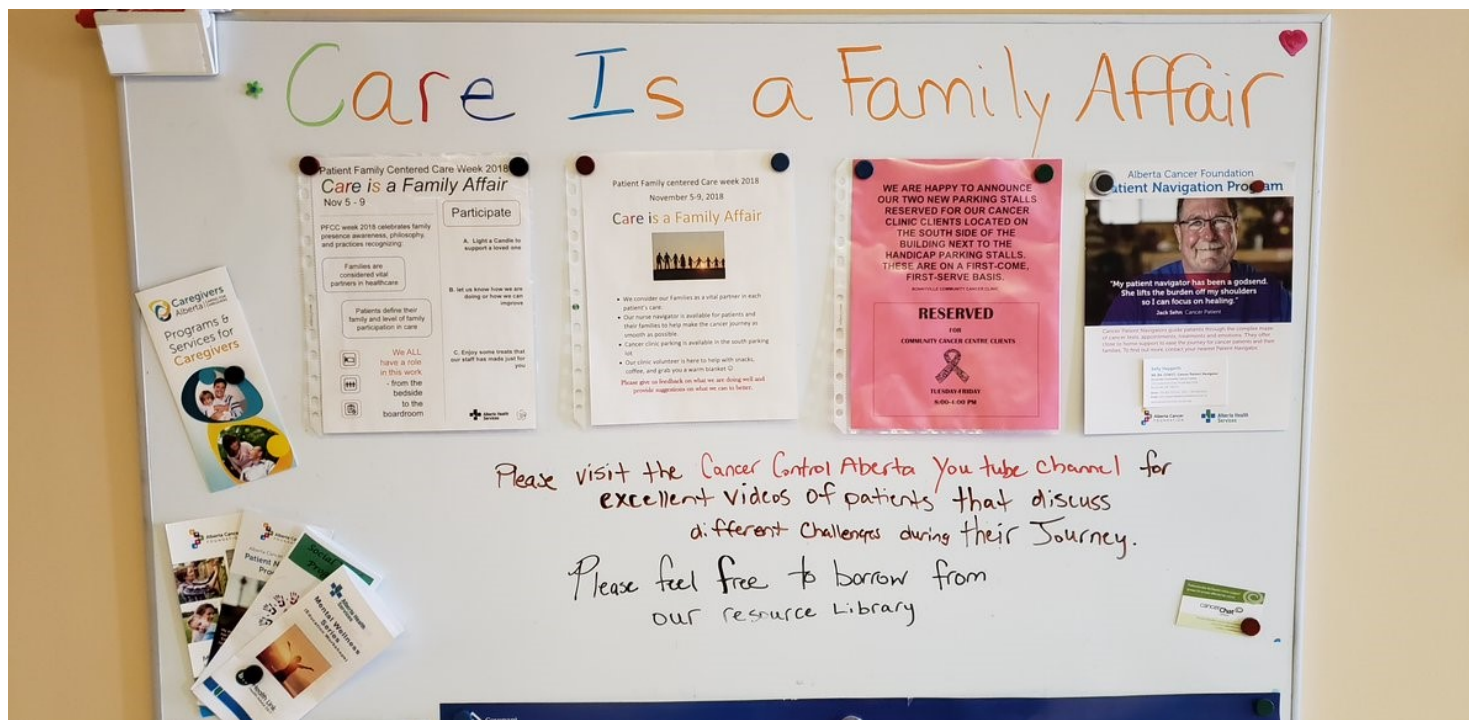 Care Is a Family Affair
Patient Family Centered Care Week 2018
Care is a Family Affair
Nov 5 - 9
PFCC week 2018 celebrates family
presence awareness, philosophy,
and practices recognizing:
Families are
considered vital
partners in healthcare
Patients define their
family and level of family
participation in care
We ALL
have a role
in this work
- from the
bedside
to the
boardroom
Participate
A. Light a Candle to
support a loved one
B. let us know how we are
doing or how we can
improve
C. Enjoy some treats that
our staff has made just for
you
Alberta Health
Services
Patient Family centered Care week 2018
November 5-9, 2018
Care is a Family Affair
We consider our Families as a vital partner in each
patient's care.
Our nurse navigator is available for patients and
their families to help make the cancer journey as
smooth as possible.
Cancer clinic parking is available in the south parking
lot
Our clinic volunteer is here to help with snacks,
coffee, and grab you a warm blanket ☺
Please give us feedback on what we are doing well and
provide suggestions on what we can to better.
WE ARE HAPPY TO ANNOUNCE
OUR TWO NEW PARKING STALLS
RESERVED FOR OUR CANCER
CLINIC CLIENTS LOCATED ON
THE SOUTH SIDE OF THE
BUILDING NEXT TO THE
HANDICAP PARKING STALLS.
THESE ARE ON A FIRST-COME,
FIRST-SERVE BASIS.
BONNYVILLE COMMUNITY CANCER CLINIC
RESERVED
FOR
COMMUNITY CANCER CENTRE CLIENTS
TUESDAY-FRIDAY
8:00-4:00 PM
Alberta Cancer Foundation
atient Navigation Pro am
"My patient navigator has been a godsend.
She lifts the burden off my shoulders
so I can focus on healing."
Jack Sehn Cancer Patient
Cancer Patient Navigators guide patients through the complex maze
of cancer tests, appointments, treatments and emotions. They offer
close to home support to ease the journey for cancer patients and their
families. To find out more contact your nearest Patient Navigator.
Alberta Cancer
FOUNDATION
Alberta Health
Services
Caregivers
Alberta
Programs &
Services for
Caregivers
Please visit the Cancer Control Aberta You tube channel for
excellent videos of patients that discuss
different challenges during their Journey.
Please feel free to borrow from
our resource Library
Alberta Cance
FOUNDATION
Alberta Cance
Patient N
Pro
Social
Pro
Alberta Health
Services
Mental Wellness
Series
(Education Workshops)
Health Link
cancerChat
Covenant